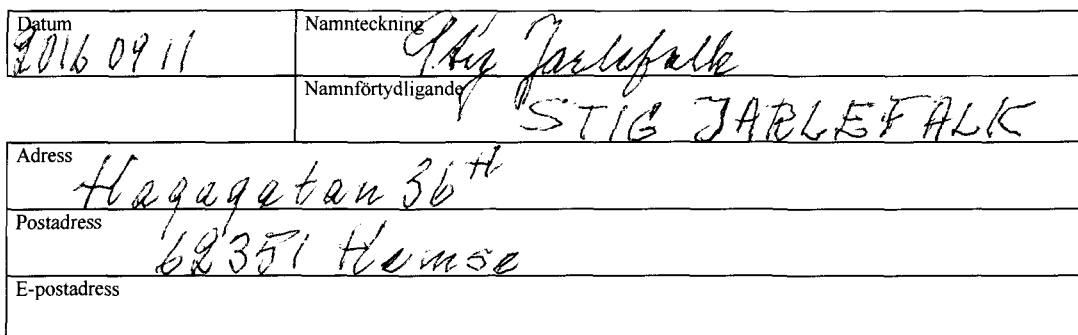 Datum
2016 09 11
Namnteckning
Stig Jarlefalk
Namnförtydligande
STIG JARLEFALK
Adress
Hagagatan 36 H
Postadress
62351 Hemse
E-postadress